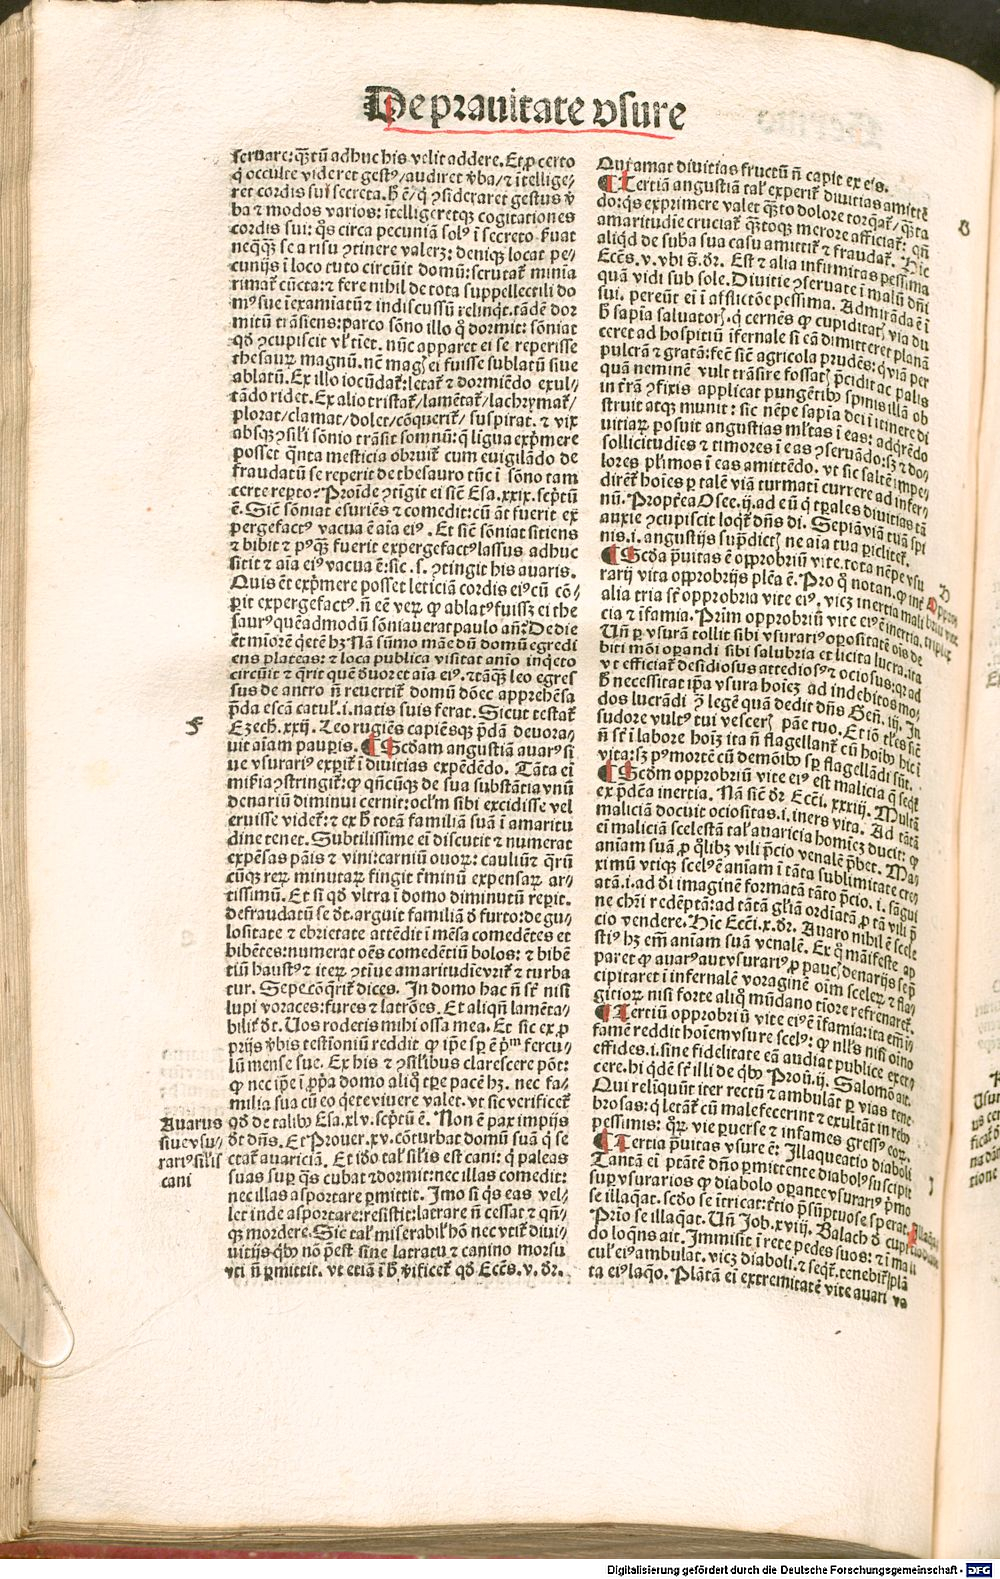 De prauitate vsure
seruare: q̄ꝫtū adhuc his velit addere. Et ꝓ certo
q̄ occulte videret gestꝰ/audiret v̄ba/ ⁊ ītellige⸗
ret cordis sui secreta. h̄ ē/ q̄ ꝯsideraret gestus v̄
ba ⁊ modos varios: ītelligeretqꝫ cogitationes
cordis sui: q̄s circa pecuniā solꝰ ī secreto f̄uat
neqꝫ se a risu ꝯtinere valerꝫ: deniqꝫ locat pe⸗
cunijs ī loco tuto circūit domū: scrutat̄ minīa
rimat̄ cūcta: ⁊ fere nihil de tota suppellectili do
mꝰ sue īexamiatū ⁊ indiscussū relinqͭ. tādē dor
mitū trāsiens: parco sōno illo q̄ dormit: sōniat
qð ꝯcupiscit vl̓ tīet. nūc apparet ei se reperisse
thesauꝝ magnū. nc̄ magꝭ ei fuisse sublatū siue
ablatū. Ex illo iocūdat̄: letat̄ ⁊ dormiēdo exul⸗
tādo ridet. Ex alio tristat̄/ lamētat̄/ lachrymat̄/
plorat/ clamat/ dolet/ cōquerit̄/ suspirat. ⁊ vix
absqꝫ ꝯsil̓i sōnio trāsit somnū: q̄ ligua exp̄mere
posset q̄nta mesticia obruit̄ cum euigilādo de
fraudatū se reperit de thesauro tūc ī sōno tam
certe reꝑto? Proīde ꝯtigit ei sic̄ Esa. xxix. sc̄ptū
ē. Sic̄ sōniat esuriēs ⁊ comedit: cū āt fuerit ex
pergefactꝰ vacua ē aīa eiꝰ. Et sic̄ sōniat sitiens
⁊ bibit ⁊ pꝰq̄ꝫ fuerit expergefactꝰ lassus adhuc
sitit ⁊ aīa eiꝰ vacua ē: sic. s. ꝯtingit his auaris.
Quis ēt exp̄mere posset leticiā cordis eiꝰ cū cō⸗
ꝑit expergefactꝰ. n̄ eē veꝝ ꝙ ablatꝰ fuissꝫ ei the
saurꝰ quēadmodū sōniauerat paulo añ? De die
ēt miorē q̄etē hꝫ. Nā sūmo mae dū domū egredi
ens plateas: ⁊ loca publica visitat anīo inq̄eto
circūit ⁊ q̄rit quē ðuoret aīa eiꝰ. ⁊tāq̄ꝫ leo egres
sus de antro n̄ reuertit̄ domū dōec apprehēsa
p̄da escā catul̓. i. natis suis ferat. Sicut testat̄
Ezech. xxij. Leo rugiēs capiēsqꝫ p̄dā deuora⸗
uit aīam pauꝑis. Scðam angustiā auarꝰ si
ue vsurariꝰ exꝑit̄ ī diuitias expēdēdo. Tāta ei
mis̄ia ꝯstringit̄: ꝙ qn̄cūqꝫ de sua substātia vnū
denariū diminui cernit: ocl̓m sibi excidisse vel
eruisse videt̄: ⁊ ex h̄ totā familiā suā ī amaritu
dine tenet. Subtilissime ei discutit ⁊ numerat
expēsas pāis ⁊ vini: carniū ouoꝝ: cauliū⁊ q̄rū
cūqꝫ reꝝ minutaꝝ fingit t̄minū expensaꝝ ar⸗
tissimū. Et si qð vltra ī domo diminutū reꝑit.
defraudatū se ðt. arguit familiā ð furto: de gu⸗
lositate ⁊ ebrietate attēdit ī mēsa comedētes et
bibētes: numerat oēs comedētiū bolos: ⁊ bibē
tiū haustꝰ ⁊ iteꝝ ꝯtīue amaritudie vrit̄ ⁊ turba
tur. Sepe cōq̄rit̄ dices. In domo hac n̄ st̄ nisi
lupi voraces: fures ⁊ latrōes. Et aliqn̄ lamēta⸗
bilit̄ ðt. Uos rodetis mihi ossa mea. Et sic ex ꝓ
prijs v̄bis testioniū reddit ꝙ ip̄e sꝑ ē p̄ᵐ fercu⸗
lū mense sue. Ex his ⁊ ꝯsil̓ibus clarescere pōt:
ꝙ nec ip̄e ī ꝓp̄a domo aliq̄ tꝑe pacē hꝫ. nec fa⸗
milia sua cū eo q̄ete viuere valet. vt sic verificet̄
qð de talibꝰ Esa. xlv. sc̄ptū ē. Non ē pax impijs
ðt dn̄s. Et Prouer. xv. cōturbat domū suā q̄ se
ctat̄ auariciā. Et iðo tal̓ sil̓is est cani: q̄ paleas
suas suꝑ q̄s cubat ⁊dormit: nec illas comedit:
nec illas asportare ꝑmittit. Imo si q̄s eas vel⸗
let inde asportare: resistit: latrare n̄ cessat ⁊ qn̄⸗
qꝫ mordere. Sic tal̓ miserabil̓ hō nec vtit̄ diui⸗
uitijs q̄bꝰ nō p̄est sine latratu ⁊ canino morsu
vti n̄ ꝑmittit. vt etiā ī h̄ v̄ificet̄ qð Ecc̄s. v. ðr.
F
Auarus
siue vsu⸗
rariꝰ sil̓is
cani
Qui amat diuitias fructū n̄ capit ex eis.
Tertiā angustiā tal̓ experit̄ diuitias amittē
do: q̄s exprimere valet q̄ꝫto dolore torq̄at̄/ q̄ꝫta
amaritudie cruciat̄ q̄ꝫtoqꝫ merore afficiat̄: qn̄
aliqð de suba sua casu amittit̄ ⁊ fraudat̄. Hic
Ecc̄s. v. vbi s̄. ðr. Est ⁊ alia infirmitas pessima
quā vidi sub sole. Diuitie ꝯseruate ī malū dn̄i
sui. pereūt ei ī afflictōe pessima. Admirāda ē ī
h̄ sapīa saluatorꝭ. q̄ cernēs ꝙ cupiditatꝭ via du
ceret ad hospitiū īfernale si eā dimitteret planā
pulcrā ⁊ gratā: fec̄ sic̄ agricola prudēs: q̄ viā per
quā neminē vult trāsire fossatꝭ p̄cidit ac palis
in t̄rā ꝯfixis applicat pungētibꝰ spinis illā ob
struit atqꝫ munit: sic nēpe sapīa dei ī itinere di
uitiaꝝ posuit angustias ml̓tas ī eas: adq̄rēdo
sollicitudīes ⁊ timores ī eas ꝯseruādo: sꝫ ⁊ do⸗
lores pl̓imos ī eas amittēdo. vt sic saltē impe⸗
dirēt̄ hoīes ꝑ talē viā turmatī currere ad infer⸗
nū. Propt̄ea Osee. ij. ad eū q̄ tꝑales diuitias tā
anxie ꝯcupiscit loqͭ dn̄s di. Sepiā viā tuā spi
nis. i. angustijs sup̄dictꝭ ne aīa tua ꝑiclitet̄.
Scða p̄uitas ē opprobriū vite. tota nēpe vsu
rarij vita opprobrijs plēa ē. Pro q̄ notan. ꝙ int̄
alia tria st̄ opprobria vite eiꝰ. vicꝫ inertia mali
cia ⁊ īfamia. Prim̄ opprobriū vite eiꝰ ē inertia.
Un̄ ꝑ vsurā tollit sibi vsurariꝰ oꝑositatē oīs de
biti mōi oꝑandi sibi salubria et licita lucra. ita
vt efficiat̄ desidiosus attediosꝰ ⁊ ociosus: q̄r ad
h̄ necessitat ip̄a vsura hoīeꝫ ad indebitos mo⸗
dos lucrādi ꝯ̄ legē quā dedit dn̄s Gen̄. iij. In
sudore vultꝰ tui vescerꝭ pāe tuo. Et iō tl̓es sic̄
n̄ st̄ ī labore hoīꝫ ita n̄ flagellant̄ cū hoībꝰ hic ī
vita: sꝫ pꝰ mortē cū demōibꝰ sꝑ flagellādi sūt.
Scðm opprobriū vite eiꝰ est malicia q̄ seqͭ
ex p̄dēa inertia. Nā sic̄ ðr Ecc̄i. xxxiij. Multā
maliciā docuit ociositas. i. iners vita. Ad tātā
ei maliciā scelestā tal̓ auaricia homīeꝫ ducit: ꝙ
aīam suā ꝓ q̄libꝫ vili p̄cio venalē p̄bet. Ma⸗
ximū vtiqꝫ scelꝰ ē aniam ī tāta sublimitate cre⸗
atā. i. ad ði imaginē formatā tāto p̄cio. i. sāgui
ne chr̄i redēptā: ad tātā gl̓iā ordīatā ꝓ tā vili p̄
cio vendere. Hic Ecc̄i. x. ðr. Auaro nihil ē scele
stiꝰ hꝫ em̄ aniam suā venalē. Ex q̄ māifeste ap
paret ꝙ auarꝰ aut vsurariꝰ ꝓ paucꝭ denarijs se p̄
cipitaret ī infernalē voraginē oīm sceleꝝ ⁊ fla⸗
gitioꝝ nisi forte aliq̄ mūdano tīore refrenaret̄.
Tertiū opprobriū vite eiꝰ ē īfamia: ita em̄ ī⸗
famē reddit hoīem vsure scelꝰ: ꝙ nll̓s nisi oīno
effides. i. sine fidelitate eā audiat publice exer⸗
cere. hi qdē st̄ illi de q̄bꝰ Prou̓. ij. Salomō ait.
Qui relīquūt iter rectū ⁊ ambulāt ꝑ vias tene⸗
brosas: q̄ letāt̄ cū malefecerint ⁊ exultāt in rebꝰ
pessimis: q̄ꝝ vie ꝑuerse ⁊ infames gressꝰ eoꝝ.
Tertia p̄uitas vsure ē: Illaqueatio diaboli
Tantā ei ptātē dn̄o ꝑmittente diabolꝰ suscipit
suꝑ vsurarios ꝙ diabolo oꝑante vsurariꝰ p̄mo
se illaq̄at. scðo se ītricat: t̄tio p̄sūptuose sperat.
Prīo se illaq̄at. Un̄ Job. xviij. Balach ð cupi
do loq̄ns ait. Immisit ī rete pedes suos: ⁊ ī mali
cul̓ eiꝰ ambulat. vicꝫ diaboli. ⁊ seqͭ. tenebit̄ plā
ta eiꝰ laq̄o. Plātā ei extremitatē vite auari vo
G
H
Opprobriū
vite
triplex
I
Illaq̄atio
diaboli
Digitalisierung gefördert durch die Deutsche Forschungsgemeinschaft - DFG